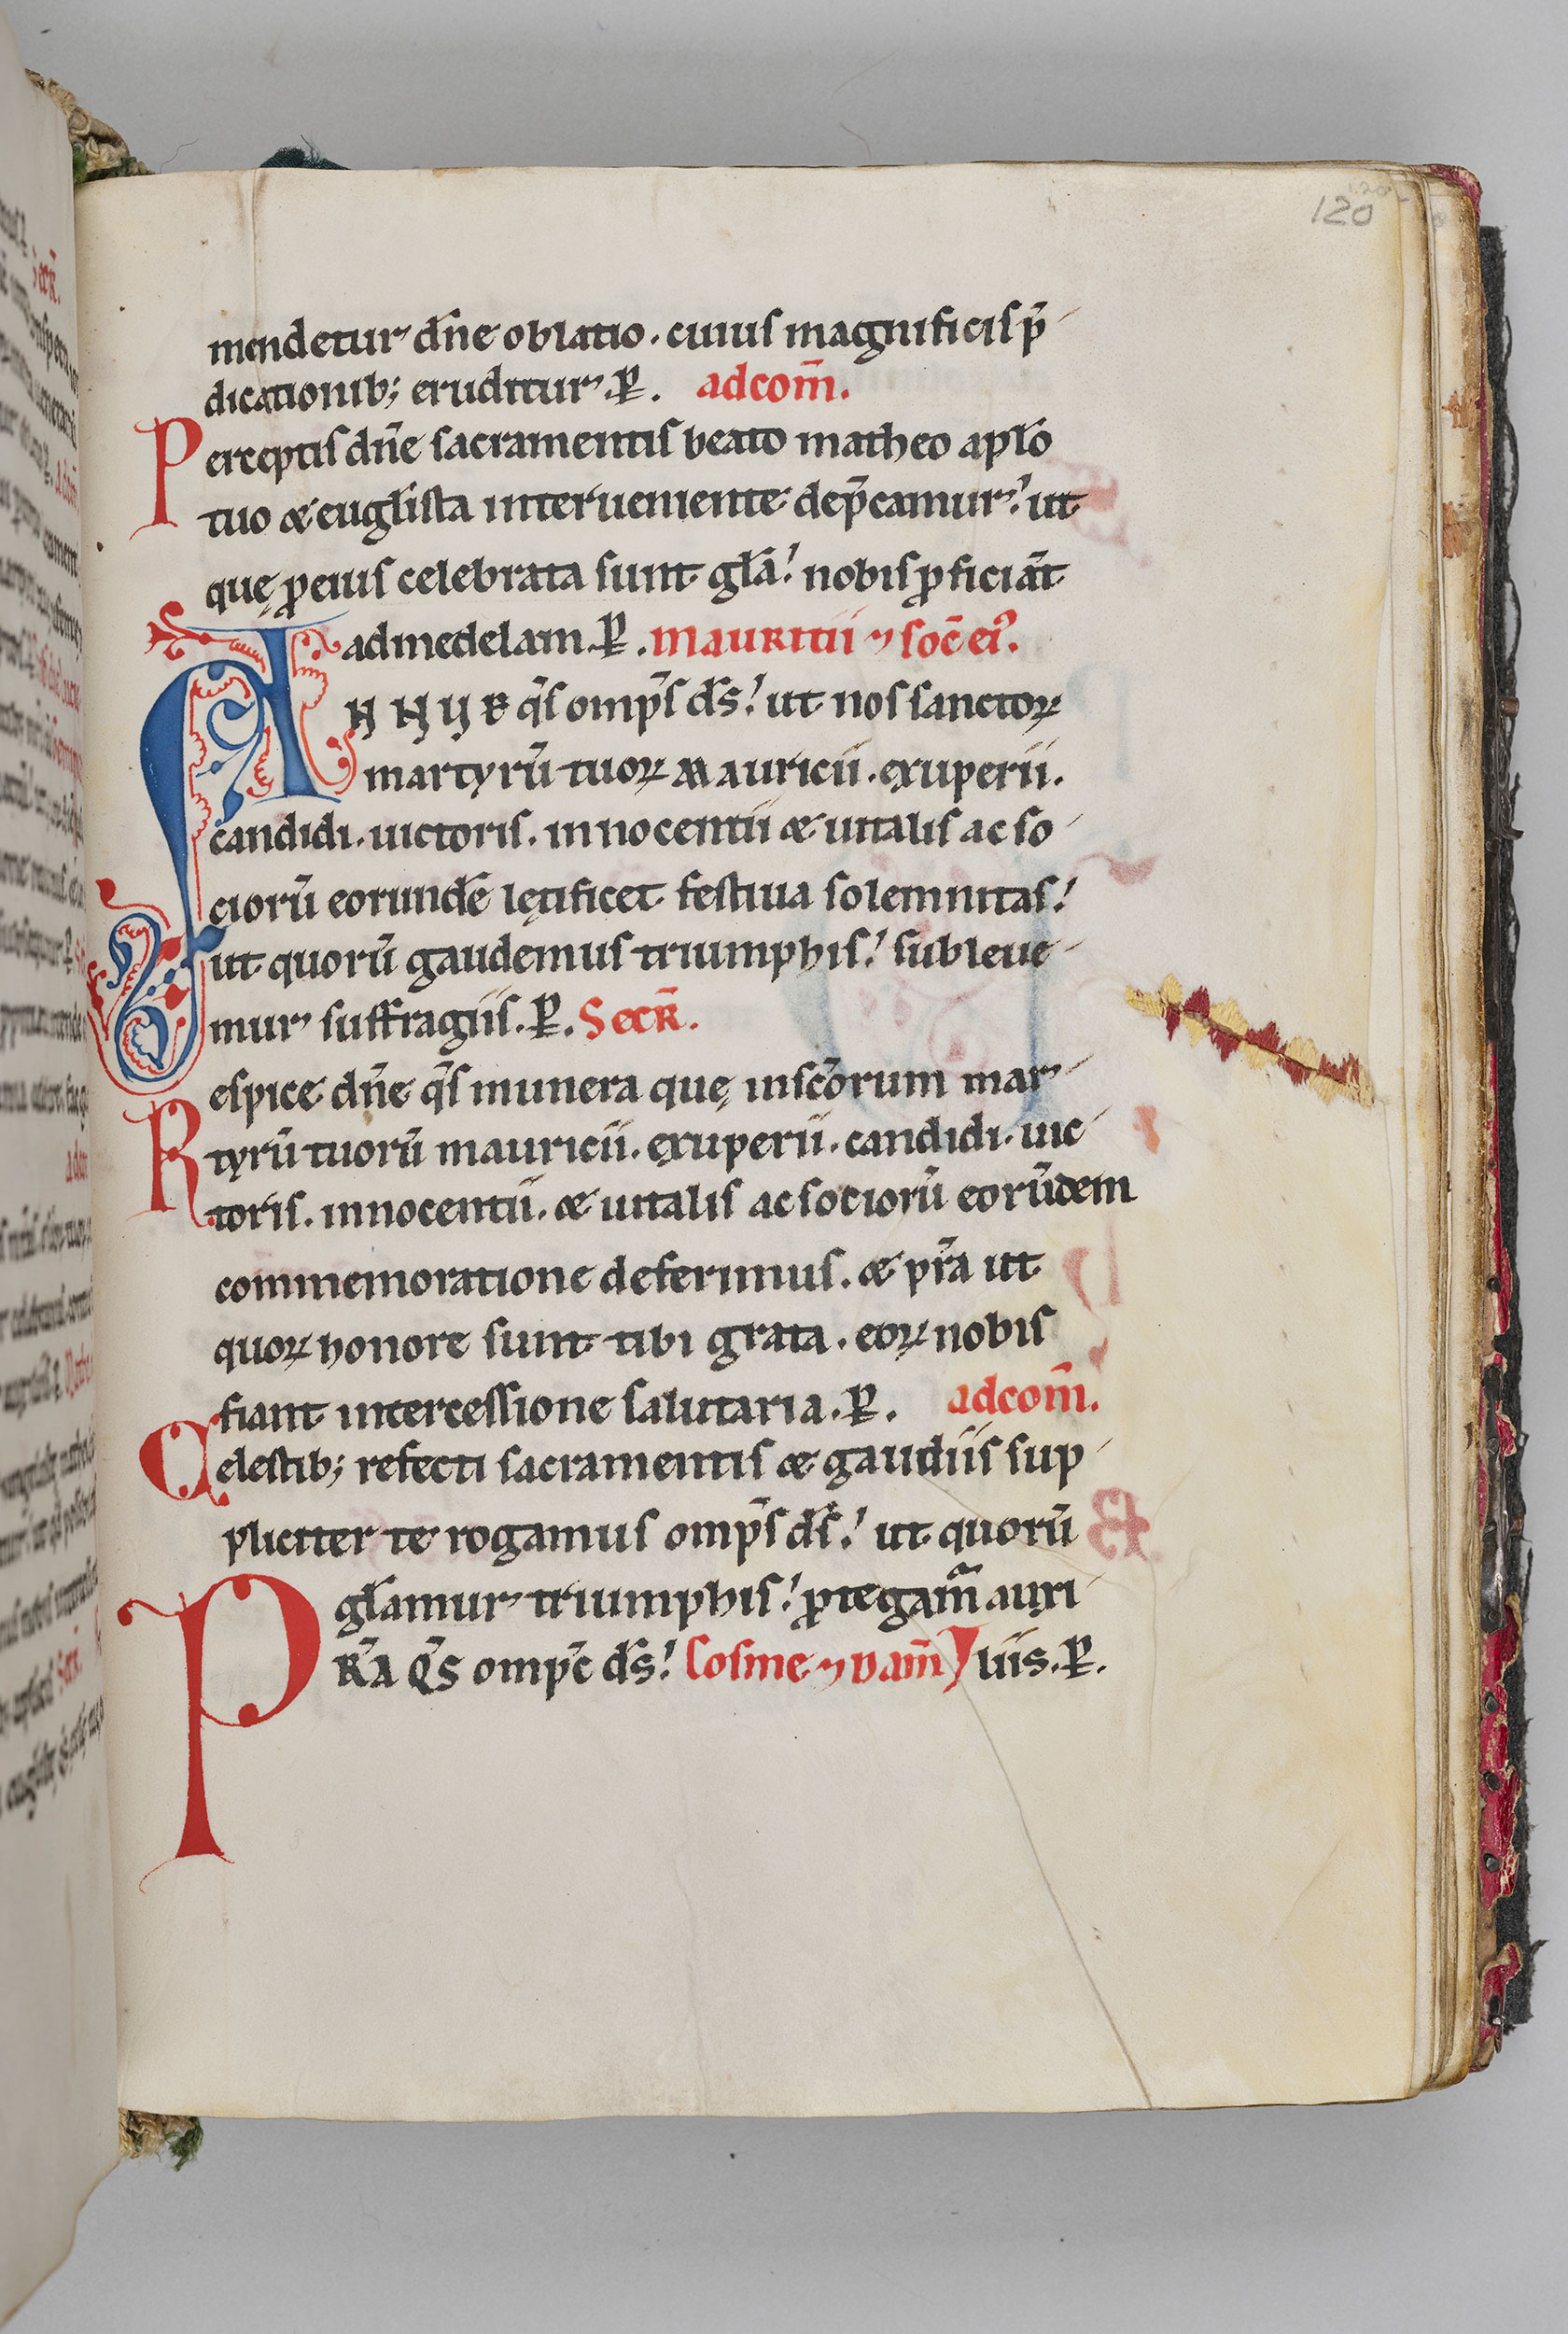 120
mendetur dn̄e oblatio. cuius magnificis p̄
dicationib; eruditur. P. ad com̄.
Perceptis dn̄e sacramentis beato matheo apl̄o
tuo & eugl̄ista interueniente dep̄camur: ut
quę ꝑ eius celebrata sunt gl̄a: nobis ꝓficiāt
ad medelam. P. Mauritii ⁊ soc̄ ei᾿.
ANNUE q̄s omp̄s ds̄: ut nos sanctoꝝ
martyrū tuoꝝ Mauricii. exuperii.
candidi. uictoris. innocentii & uitalis ac so
ciorū eorundē lętificet festiua solemnitas:
ut quorū gaudemus triumphis: subleue
mur suffragiis. P. Secr̄.
Respice dn̄e q̄s munera quę in sc̄orum mar
tyrū tuorū mauricii. exuperii. candidi. uic
toris. innocentii. & uitalis ac sociorū eorūdem
commemoratione deferimus. & p̄ra ut
quoꝝ honore sunt tibi grata. eoꝝ nobis
fiant intercessione salutaria. P. ad com̄.
Celestib; refecti sacramentis & gaudiis sup
pliciter te rogamus omp̄s ds̄: ut quorū
gl̄amur triumphis: ꝓtegam̄ auxi
PRA Q̄S omp̄c ds̄: Cosme ⁊ dam̄ liis. P.